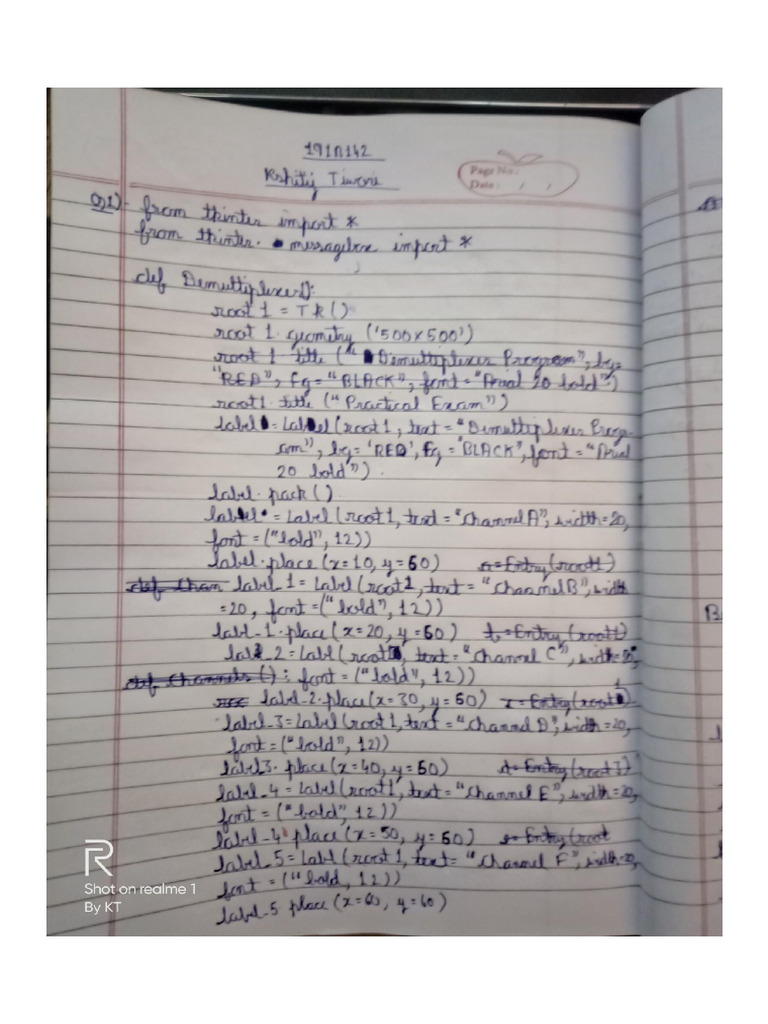 191B142
Kshitij Tiwari
Page No.:
Date: / /
Q1) from tkinter import *
from tkinter. messagebox import *
def Demultiplexer1():
root 1 = TK()
root 1. geometry ('500x500')
root 1 title (" Demultiplexer Program", bg=
"RED", fg="BLACK", font="Arial 20 bold")
root1. title ("Practical Exam")
label = Label (root1, text = "Demultiplexer Progr-
am", bg= 'RED', fg = "BLACK", font = "Arial
20 bold")
label. pack ()
label = Label (root1, text = "Channel A", width=20,
font = ("bold", 12))
label. place (x=10, y=60) a=Entry(root1)
def Chan label_1= Label (root1, text= "Channel B", width
=20, font =("bold", 12))
labl_1. place (x=20, y=60) b=Entry(root1)
label_2= Labl (root1, text= "Channel C", width=20,
def Channels (): font = ("bold", 12))
label_2. place(x=30, y=60)
label_3=Label(root1, text="Channel D", width=20,
font = ("bold", 12))
label3. place (x=40, y=60)
label_4 = Label (root1, text= "Channel E", width=20,
font = ("bold", 12))
label_4 place (x=50, y=60)
label_5= Labl (root 1, text= "Channel F", width=20,
font = ("bold, 12))
label_5 place (x=60, y=60)
R
Shot on realme 1
By KT